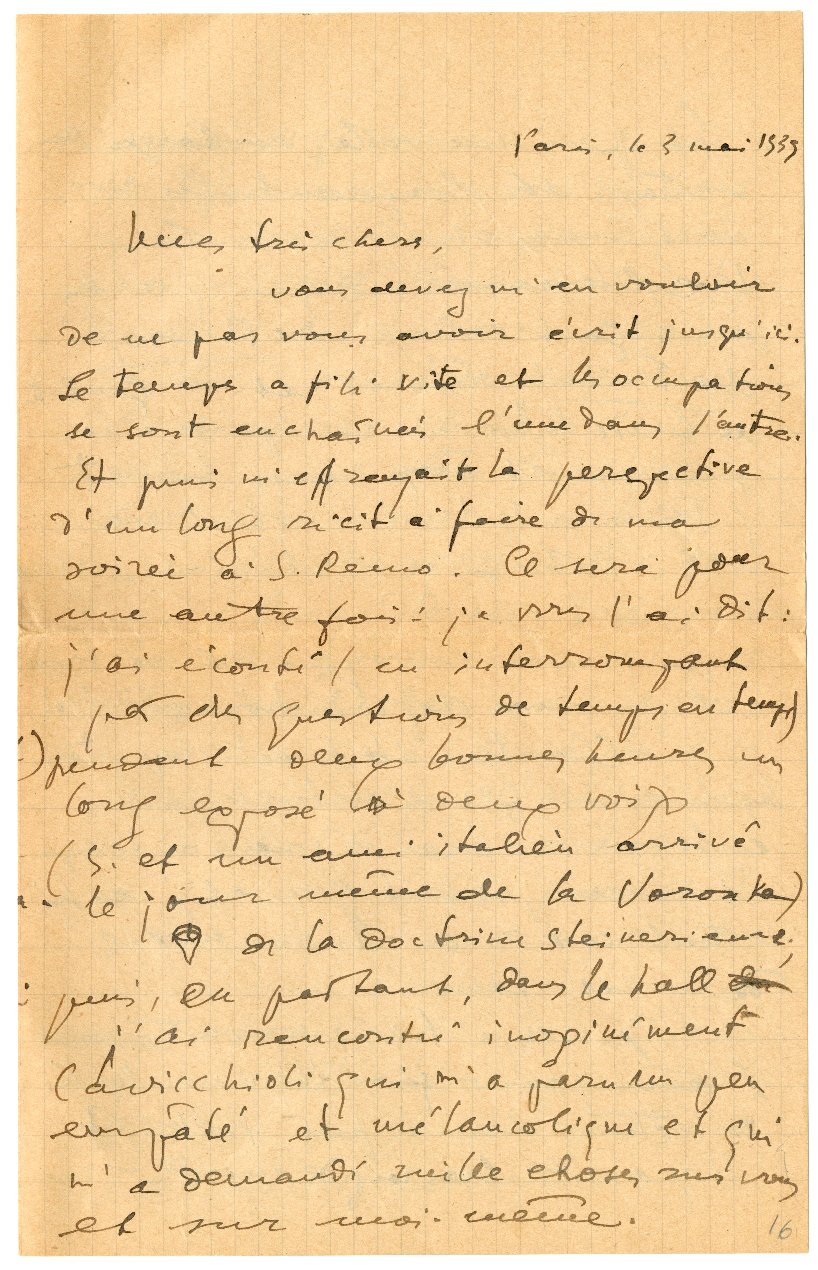 Paris, le 3 mai 1939
Mes très chers,
vous devez m'en vouloir
de ne pas vous avoir écrit jusqu'ici.
Le temps a filé vite et les occupations
se sont enchaînées l'une dans l'autre.
Et puis m'effrayait la perspective
d'un long récit à faire de ma
soirée à S. Remo. Ce sera pour
une autre fois : je vous l'ai dit :
j'ai écouté (en interrompant
par des questions de temps en temps)
pendant deux bonnes heures un
long exposé à deux voix
(S. et un ami italien arrivé
le jour même de la Voronka)
de la doctrine steinerienne ;
puis, en partant, dans le hall
j'ai rencontré inopinément
Cavicchioli qui m'a paru un peu
empâté et mélancolique et qui
m'a demandé mille choses sur vous
et sur moi-même.
16